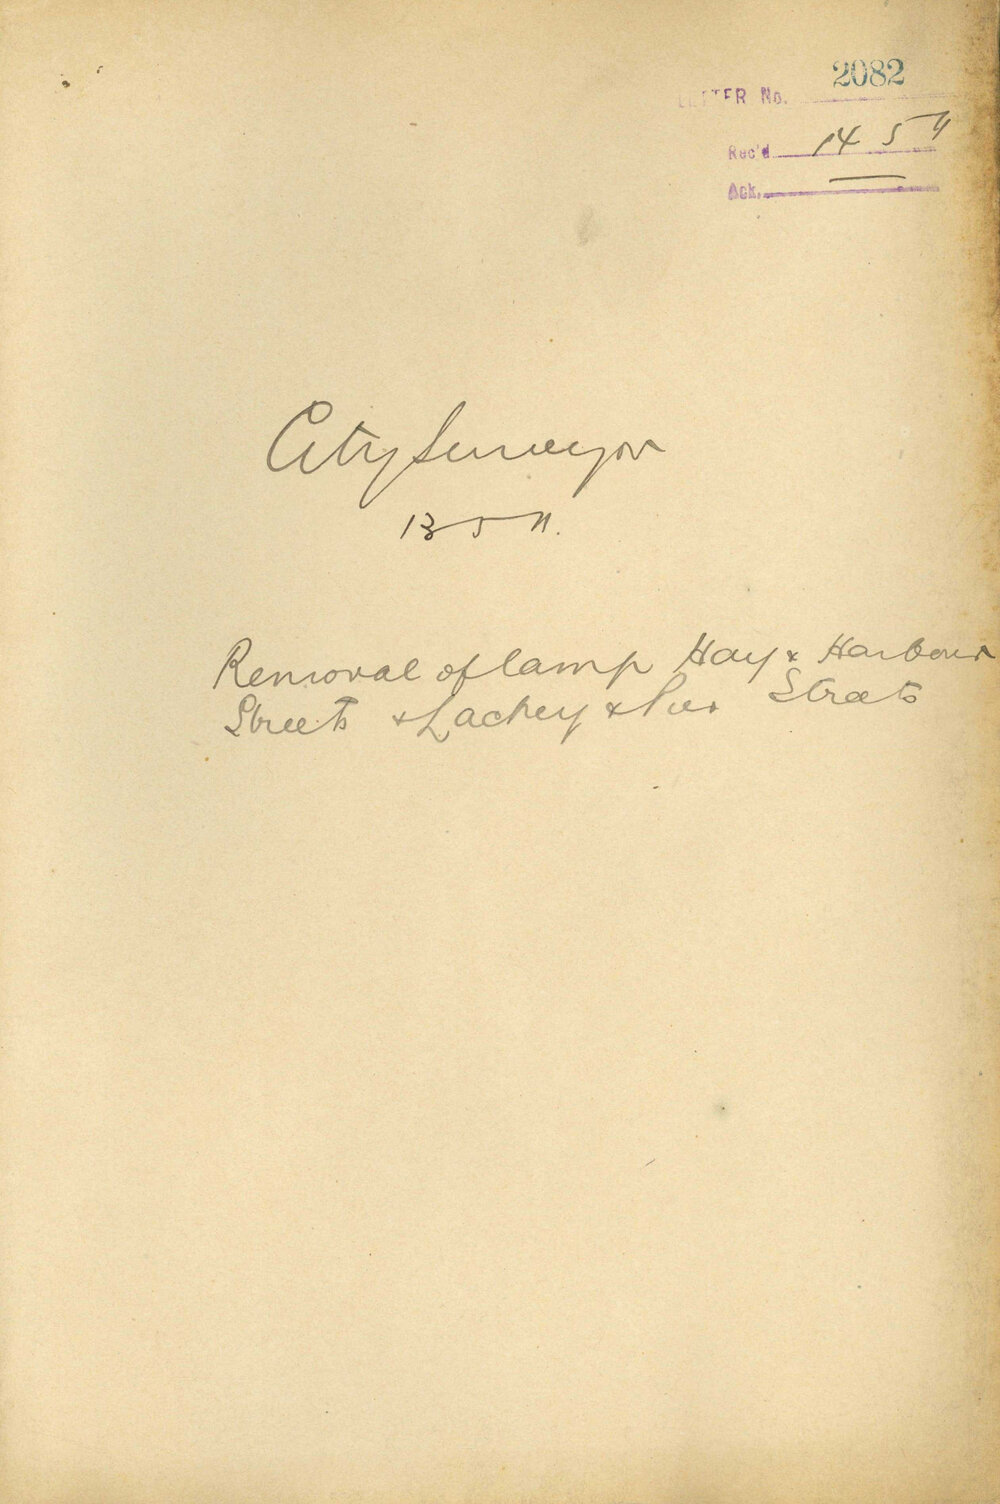 LETTER No. 2082
Rec'd 14 5 11
Ack.
City Surveyor
13 5 11.
Removal of lamp Hay & Harbour
Streets & Lackey & Pier Streets